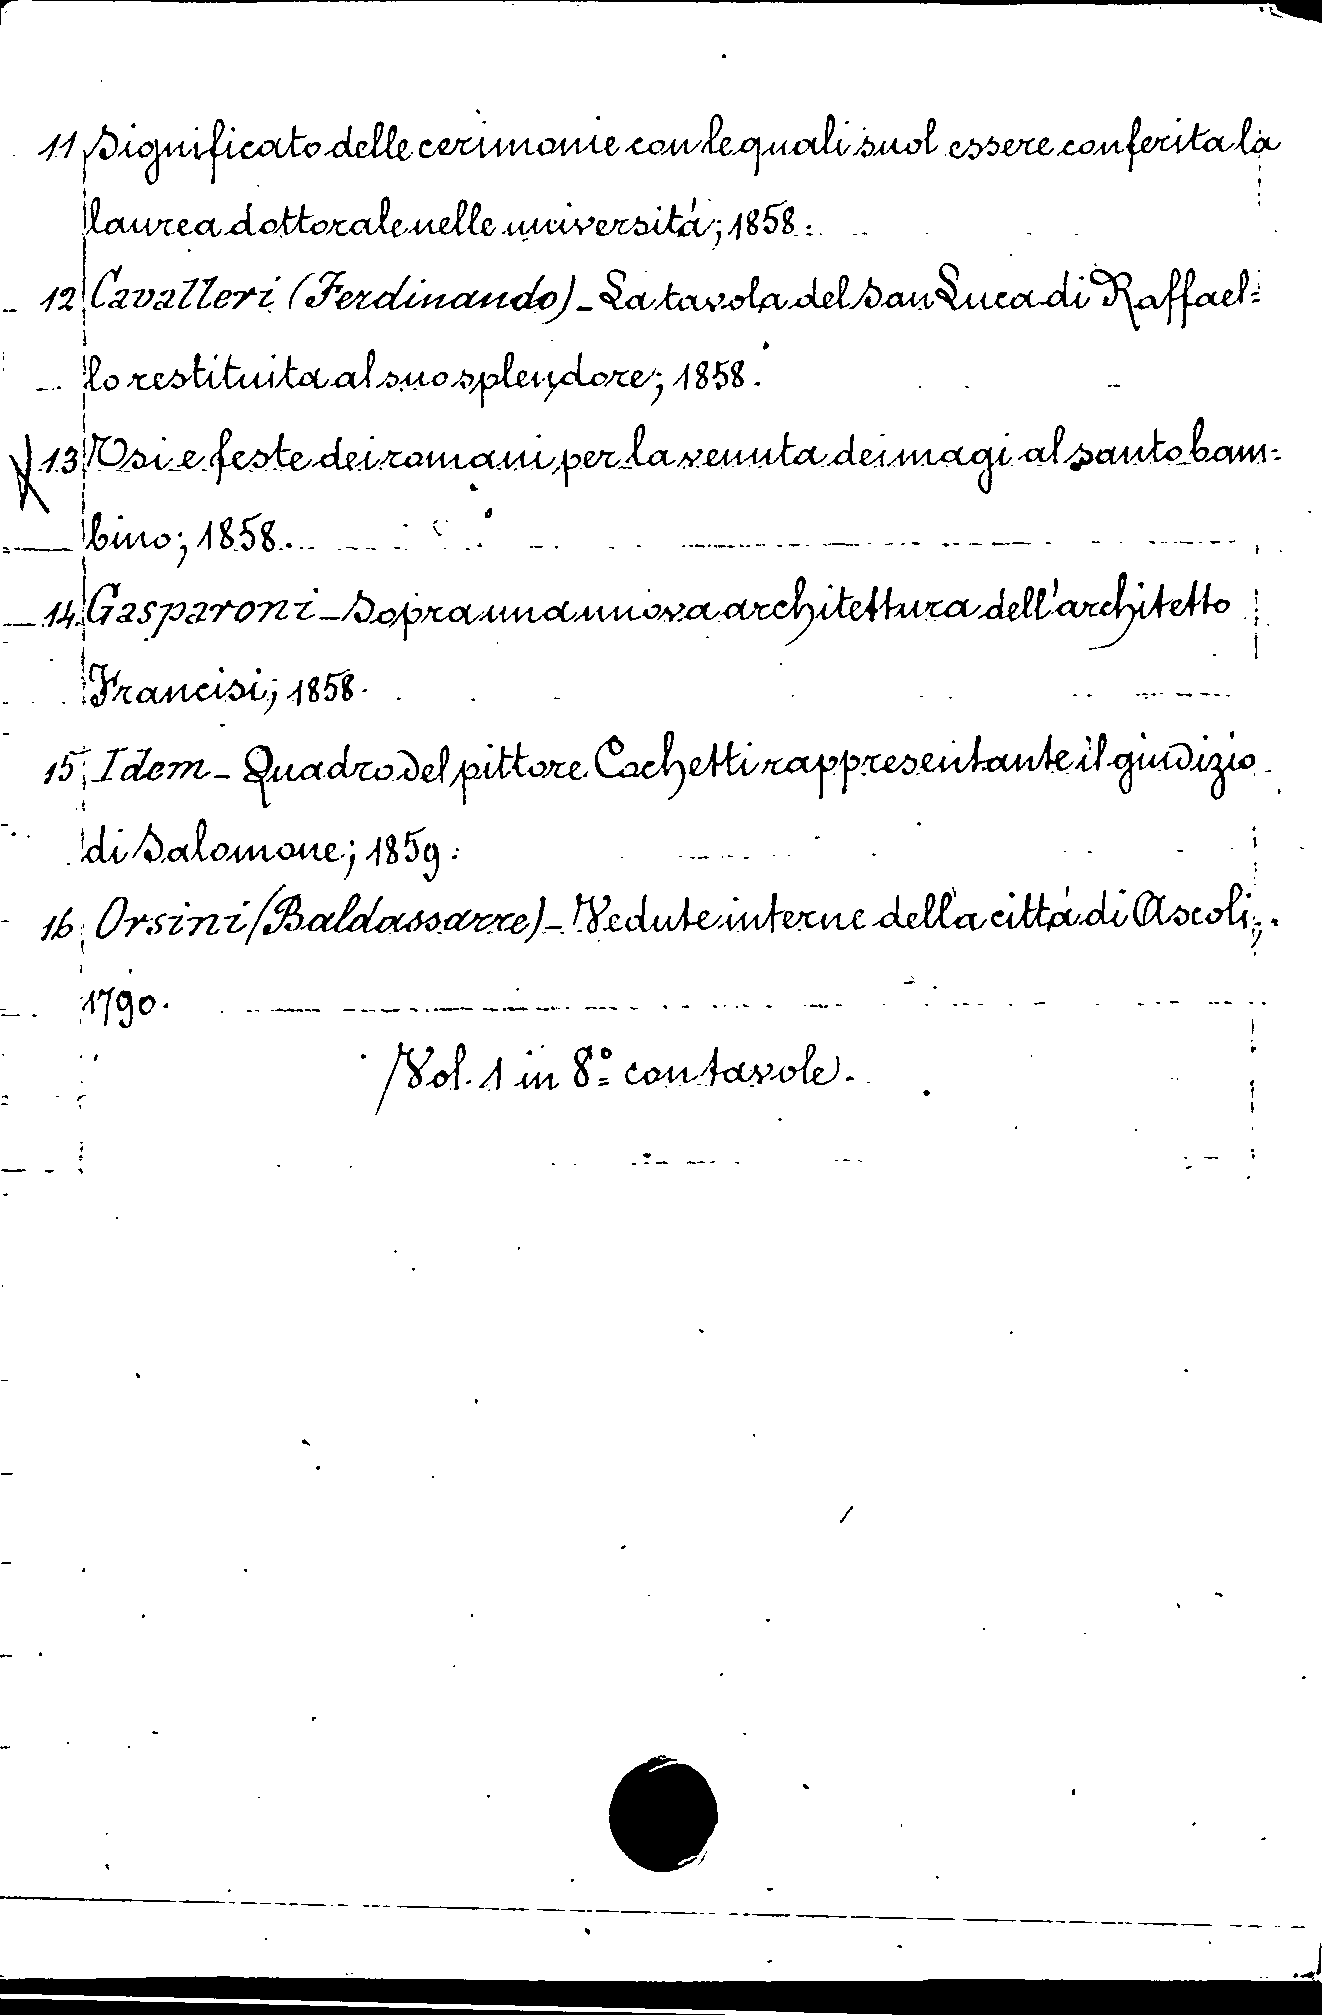 11 Significato delle cerimonie con le quali suol essere conferita la
laurea dottorale nelle università; 1858.
12 Cavalleri (Ferdinando) - La tavola del San Luca di Raffael=
lo restituita al suo splendore; 1858.
13 Usi e feste dei romani per la venuta dei magi al santo bam=
bino; 1858.
14 Gasparoni - Sopra una nuova architettura dell'architetto
Francisi; 1858.
15 Idem - Quadro del pittore Cochetti rappresentante il giudizio
di Salomone; 1859.
16 Orsini (Baldassarre) - Vedute interne della città di Ascoli;
1790.
Vol. 1 in 8º con tavole.